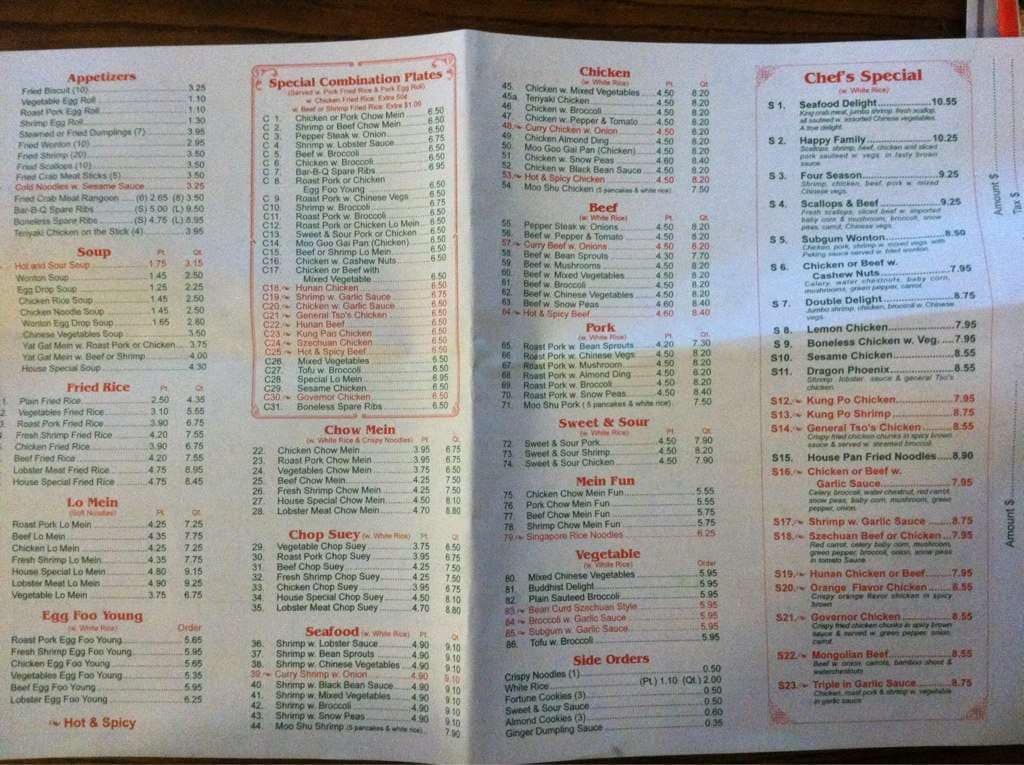 Appetizers
Fried Biscuit (10) 3.25
Vegetable Egg Roll 1.10
Roast Pork Egg Roll 1.10
Shrimp Egg Roll 1.30
Steamed or Fried Dumplings (7) 3.95
Fried Wonton (10) 2.95
Fried Shrimp (20) 3.50
Fried Scallops (10) 3.50
Fried Crab Meat Sticks (5) 3.50
Cold Noodles w. Sesame Sauce 3.25
Fried Crab Meat Rangoon (6) 2.65 (8) 3.50
Bar-B-Q Spare Ribs (S) 5.00 (L) 9.50
Boneless Spare Ribs (S) 4.75 (L) 8.95
Teriyaki Chicken on the Stick (4) 3.95
Soup Pt. Qt.
Hot and Sour Soup 1.75 3.15
Wonton Soup 1.45 2.50
Egg Drop Soup 1.25 2.25
Chicken Rice Soup 1.45 2.50
Chicken Noodle Soup 1.45 2.50
Wonton Egg Drop Soup 1.65 2.80
Chinese Vegetables Soup 3.50
Yat Gat Mein w. Roast Pork or Chicken 3.75
Yat Gat Mein w. Beef or Shrimp 4.00
House Special Soup 4.30
Fried Rice Pt. Qt.
1. Plain Fried Rice 2.50 4.35
Vegetables Fried Rice 3.10 5.55
Roast Pork Fried Rice 3.90 6.75
Fresh Shrimp Fried Rice 4.20 7.55
Chicken Fried Rice 3.90 6.75
Beef Fried Rice 4.20 7.55
Lobster Meat Fried Rice 4.75 8.95
House Special Fried Rice 4.75 8.45
Lo Mein
(Soft Noodles) Pt. Qt.
Roast Pork Lo Mein 4.25 7.25
Beef Lo Mein 4.35 7.75
Chicken Lo Mein 4.25 7.25
Fresh Shrimp Lo Mein 4.35 7.75
House Special Lo Mein 4.80 9.15
Lobster Meat Lo Mein 4.90 9.25
Vegetable Lo Mein 3.75 6.75
Egg Foo Young
(w. White Rice) Order
Roast Pork Egg Foo Young 5.65
Fresh Shrimp Egg Foo Young 5.95
Chicken Egg Foo Young 5.65
Vegetables Egg Foo Young 5.35
Beef Egg Foo Young 5.95
Lobster Egg Foo Young 6.25
Hot & Spicy
Special Combination Plates
(Served w. Pork Fried Rice & Pork Egg Roll)
w. Chicken Fried Rice: Extra 50¢
w. Beef or Shrimp Fried Rice: Extra $1.00
C 1. Chicken or Pork Chow Mein 6.50
C 2. Shrimp or Beef Chow Mein 6.50
C 3. Pepper Steak w. Onion 6.50
C 4. Shrimp w. Lobster Sauce 6.50
C 5. Beef w. Broccoli 6.50
C 6. Chicken w. Broccoli 6.50
C 7. Bar-B-Q Spare Ribs 6.50
C 8. Roast Pork or Chicken
Egg Foo Young 6.50
C 9. Roast Pork w. Chinese Vegs 6.50
C10. Shrimp w. Broccoli 6.50
C11. Roast Pork w. Broccoli 6.50
C12. Roast Pork or Chicken Lo Mein 6.50
C13. Sweet & Sour Pork or Chicken 6.50
C14. Moo Goo Gai Pan (Chicken) 6.50
C15. Beef or Shrimp Lo Mein 6.50
C16. Chicken w. Cashew Nuts 6.50
C17. Chicken or Beef with
Mixed Vegetable 6.50
C18. Hunan Chicken 6.50
C19. Shrimp w. Garlic Sauce 6.50
C20. Chicken w. Garlic Sauce 6.50
C21. General Tso's Chicken 6.50
C22. Hunan Beef 6.50
C23. Kung Pan Chicken 6.50
C24. Szechuan Chicken 6.50
C25. Hot & Spicy Beef 6.50
C26. Mixed Vegetables 6.50
C27. Tofu w. Broccoli 6.50
C28. Special Lo Mein 6.95
C29. Sesame Chicken 6.50
C30. Governor Chicken 6.50
C31. Boneless Spare Ribs 6.50
Chow Mein
(w. White Rice & Crispy Noodles) Pt. Qt.
22. Chicken Chow Mein 3.95 6.75
23. Roast Pork Chow Mein 3.95 6.75
24. Vegetables Chow Mein 3.75 6.50
25. Beef Chow Mein 4.25 7.50
26. Fresh Shrimp Chow Mein 4.25 7.50
27. House Special Chow Mein 4.50 8.10
28. Lobster Meat Chow Mein 4.70 8.80
Chop Suey (w. White Rice) Pt. Qt.
29. Vegetable Chop Suey 3.75 6.50
30. Roast Pork Chop Suey 3.95 6.75
31. Beef Chop Suey 4.25 7.50
32. Fresh Shrimp Chop Suey 4.25 7.50
33. Chicken Chop Suey 3.95 6.75
34. House Special Chop Suey 4.50 8.10
35. Lobster Meat Chop Suey 4.70 8.80
Seafood (w. White Rice) Pt. Qt.
36. Shrimp w. Lobster Sauce 4.90 9.10
37. Shrimp w. Bean Sprouts 4.90 9.10
38. Shrimp w. Chinese Vegetables 4.90 9.10
39. Curry Shrimp w. Onion 4.90 9.10
40. Shrimp w. Black Bean Sauce 4.90 9.10
41. Shrimp w. Mixed Vegetables 4.90 9.10
42. Shrimp w. Broccoli 4.90 9.10
43. Shrimp w. Snow Peas 4.90 9.10
44. Moo Shu Shrimp (5 pancakes & white rice) 7.90
Chicken
(w. White Rice) Pt. Qt.
45. Chicken w. Mixed Vegetables 4.50 8.20
45a. Teriyaki Chicken 4.50 8.20
46. Chicken w. Broccoli 4.50 8.20
47. Chicken w. Pepper & Tomato 4.50 8.20
48. Curry Chicken w. Onion 4.50 8.20
49. Chicken Almond Ding 4.50 8.20
50. Moo Goo Gai Pan (Chicken) 4.50 8.20
51. Chicken w. Snow Peas 4.60 8.40
52. Chicken w. Black Bean Sauce 4.50 8.20
53. Hot & Spicy Chicken 4.50 8.20
54. Moo Shu Chicken (5 pancakes & white rice) 7.50
Beef
(w. White Rice) Pt. Qt.
55. Pepper Steak w. Onions 4.50 8.20
56. Beef w. Pepper & Tomato 4.50 8.20
57. Curry Beef w. Onions 4.50 8.20
58. Beef w. Bean Sprouts 4.30 7.70
59. Beef w. Mushrooms 4.50 8.20
60. Beef w. Mixed Vegetables 4.50 8.20
61. Beef w. Broccoli 4.50 8.20
62. Beef w. Chinese Vegetables 4.50 8.20
63. Beef w. Snow Peas 4.60 8.40
64. Hot & Spicy Beef 4.60 8.40
Pork
(w. White Rice) Pt. Qt.
65. Roast Pork w. Bean Sprouts 4.20 7.30
66. Roast Pork w. Chinese Vegs 4.50 8.20
67. Roast Pork w. Mushroom 4.50 8.20
68. Roast Pork w. Almond Ding 4.50 8.20
69. Roast Pork w. Broccoli 4.50 8.20
70. Roast Pork w. Snow Peas 4.50 8.40
71. Moo Shu Pork (5 pancakes & white rice) 7.50
Sweet & Sour
(w. White Rice) Pt. Qt.
72. Sweet & Sour Pork 4.50 7.90
73. Sweet & Sour Shrimp 4.50 8.20
74. Sweet & Sour Chicken 4.50 7.90
Mein Fun
75. Chicken Chow Mein Fun 5.55
76. Pork Chow Mein Fun 5.55
77. Beef Chow Mein Fun 5.75
78. Shrimp Chow Mein Fun 5.75
79. Singapore Rice Noodles 6.25
Vegetable
(w. White Rice) Order
80. Mixed Chinese Vegetables 5.95
81. Buddhist Delight 5.95
82. Plain Sauteed Broccoli 5.95
83. Bean Curd Szechuan Style 5.95
84. Broccoli w. Garlic Sauce 5.95
85. Subgum w. Garlic Sauce 5.95
86. Tofu w. Broccoli 5.95
Side Orders
Crispy Noodles (1) 0.50
White Rice (Pt.) 1.10 (Qt.) 2.00
Fortune Cookies (3) 0.50
Sweet & Sour Sauce 0.50
Almond Cookies (3) 0.60
Ginger Dumpling Sauce 0.35
Chef's Special
(w. White Rice)
S 1. Seafood Delight 10.55
King crab meat, jumbo shrimp, fresh scallop,
all sauteed w. assorted Chinese vegetables.
A true delight.
S 2. Happy Family 10.25
Scallops, shrimp, beef, chicken and sliced
pork sauteed w. vegs. in tasty brown
sauce
S 3. Four Season 9.25
Shrimp, chicken, beef, pork w. mixed
Chinese vegs.
S 4. Scallops & Beef 9.25
Fresh scallops, sliced beef w. imported
baby corn & mushroom, broccoli, snow
peas, carrot, Chinese vegs.
S 5. Subgum Wonton 8.50
Chicken, pork, shrimp w. mixed vegs. with
Peking sauce served w. fried wonton.
S 6. Chicken or Beef w.
Cashew Nuts 7.95
Celery, water chestnuts, baby corn,
mushrooms, green pepper, carrot.
S 7. Double Delight 8.75
Jumbo shrimp, chicken, broccoli w. Chinese
vegs.
S 8. Lemon Chicken 7.95
S 9. Boneless Chicken w. Veg. 7.95
S10. Sesame Chicken 8.55
S11. Dragon Phoenix 8.55
Shrimp lobster sauce & general Tso's
chicken.
S12. Kung Po Chicken 7.95
S13. Kung Po Shrimp 8.75
S14. General Tso's Chicken 8.55
Crispy fried chicken chunks in spicy brown
sauce & w. steamed broccoli.
S15. House Pan Fried Noodles 8.90
S16. Chicken or Beef w.
Garlic Sauce 7.95
Celery, broccoli, water chestnut, red carrot,
snow peas, baby corn, mushroom, green
pepper, onion.
S17. Shrimp w. Garlic Sauce 8.75
S18. Szechuan Beef or Chicken 7.95
Red carrot, celery baby corn, mushroom,
green pepper, broccoli, onion, snow peas
in tomato Sauce.
S19. Hunan Chicken or Beef 7.95
S20. Orange Flavor Chicken 8.55
Crispy orange flavor chicken in spicy
brown
S21. Governor Chicken 8.55
Crispy fried chicken chunks in spicy brown
sauce & served w. green pepper, onion,
carrot.
S22. Mongolian Beef 8.55
Beef w. onion, carrots, bamboo shoot &
waterchestnuts
S23. Triple in Garlic Sauce 8.75
Chicken, roast pork & shrimp w. vegetable
in garlic sauce.
Amount $
Tax $
Amount $